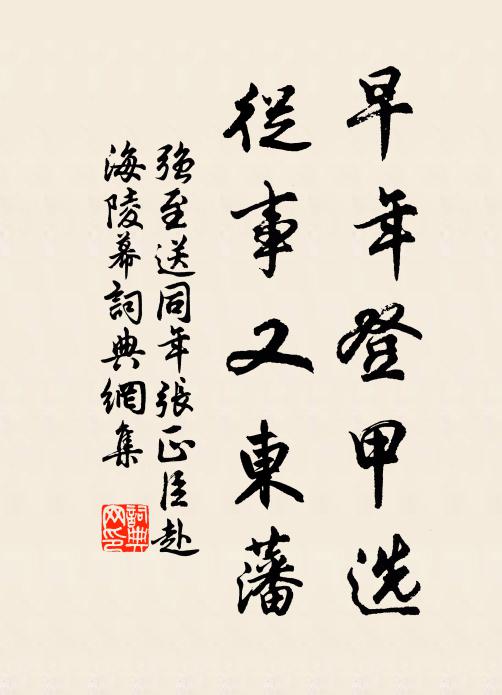 早年登甲选
從事又東藩
强至送同年張正臣赴
海陵幕詞典網集
詞典
网印